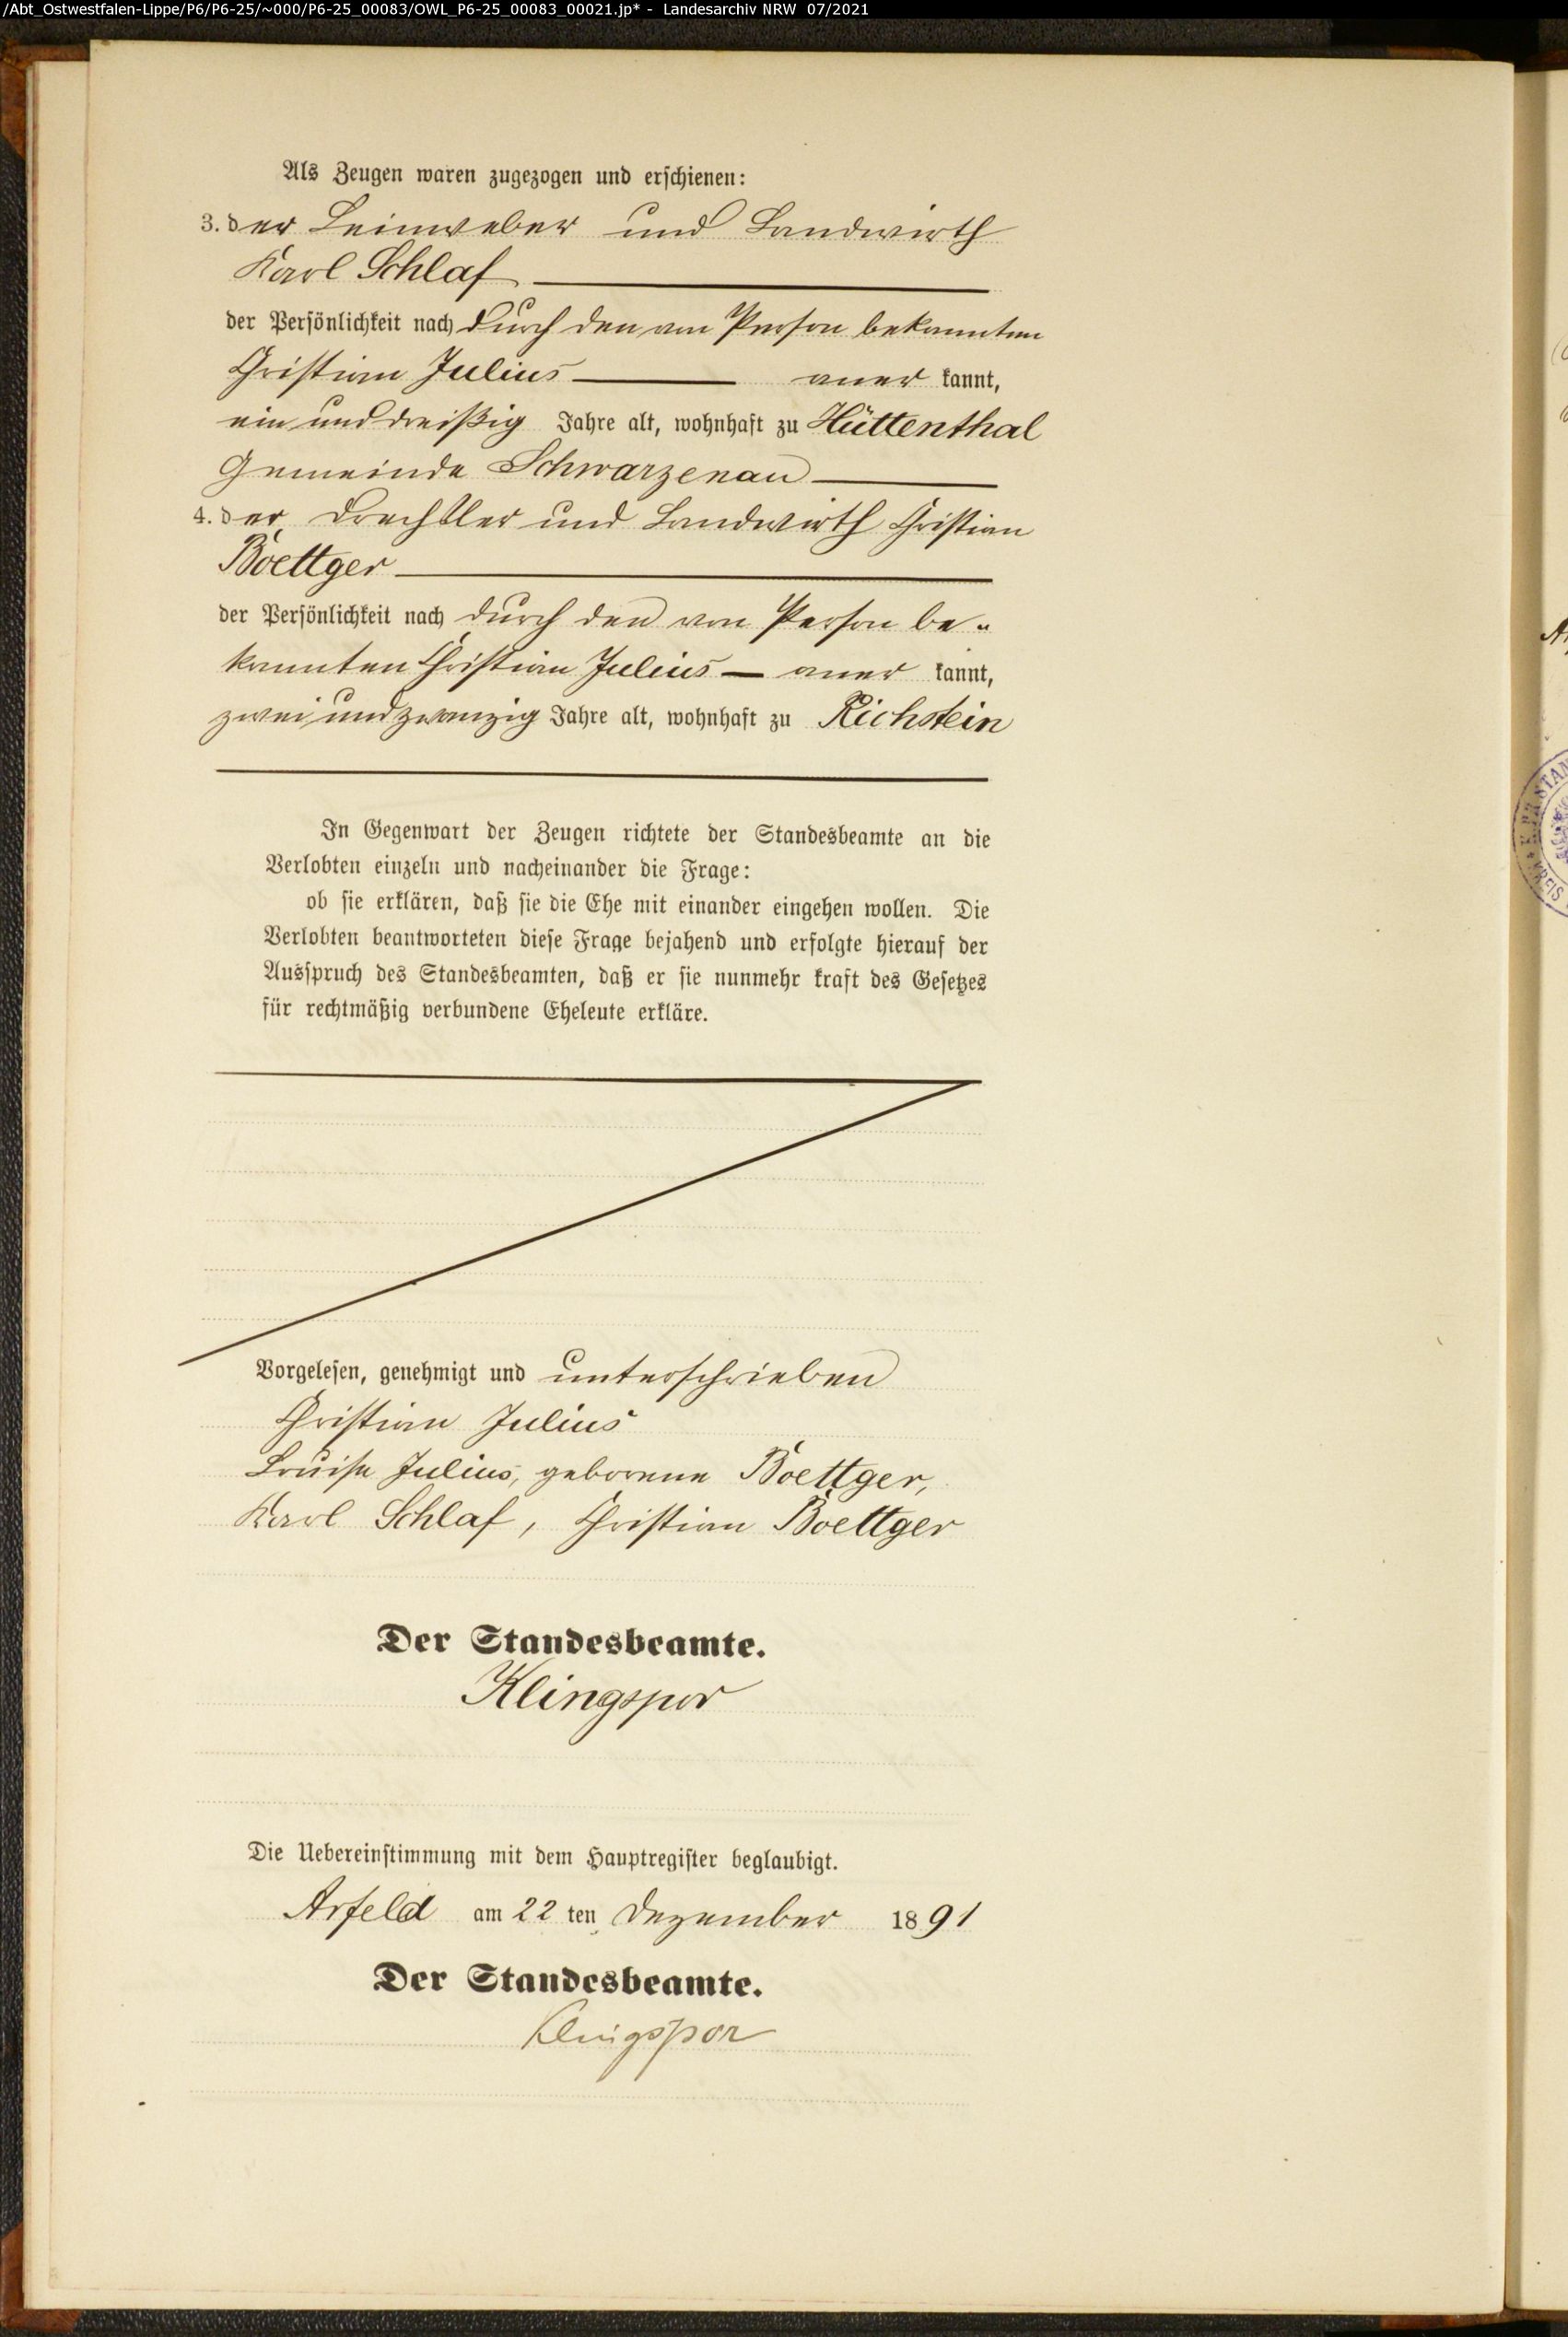 /Abt_Ostwestfalen-Lippe/P6/P6-25/~000/P6-25_00083/OWL_P6-25_00083_00021.jp* - Landesarchiv NRW 07/2021
Als Zeugen waren zugezogen und erschienen:
3. der Leinweber und Landwirth
Karl Schlaf
der Persönlichkeit nach durch den von Person bekannten
Christian Julius aner kannt,
ein und dreißig Jahre alt, wohnhaft zu Hüttenthal
Gemeinde Schwarzenau
4. der Drechsler und Landwirth Christian
Boettger
der Persönlichkeit nach durch den von Person be-
kannten Christian Julius — aner kannt,
zwei und zwanzig Jahre alt, wohnhaft zu Richstein
In Gegenwart der Zeugen richtete der Standesbeamte an die
Verlobten einzeln und nacheinander die Frage:
ob sie erklären, daß sie die Ehe mit einander eingehen wollen. Die
Verlobten beantworteten diese Frage bejahend und erfolgte hierauf der
Ausspruch des Standesbeamten, daß er sie nunmehr kraft des Gesetzes
für rechtmäßig verbundene Eheleute erkläre.
Vorgelesen, genehmigt und unterschrieben
Christian Julius
Louise Julius, geborene Boettger,
Karl Schlaf, Christian Boettger
Der Standesbeamte.
Klingspor
Die Uebereinstimmung mit dem Hauptregister beglaubigt.
Arfeld am 22 ten Dezember 1891
Der Standesbeamte.
Klingspor